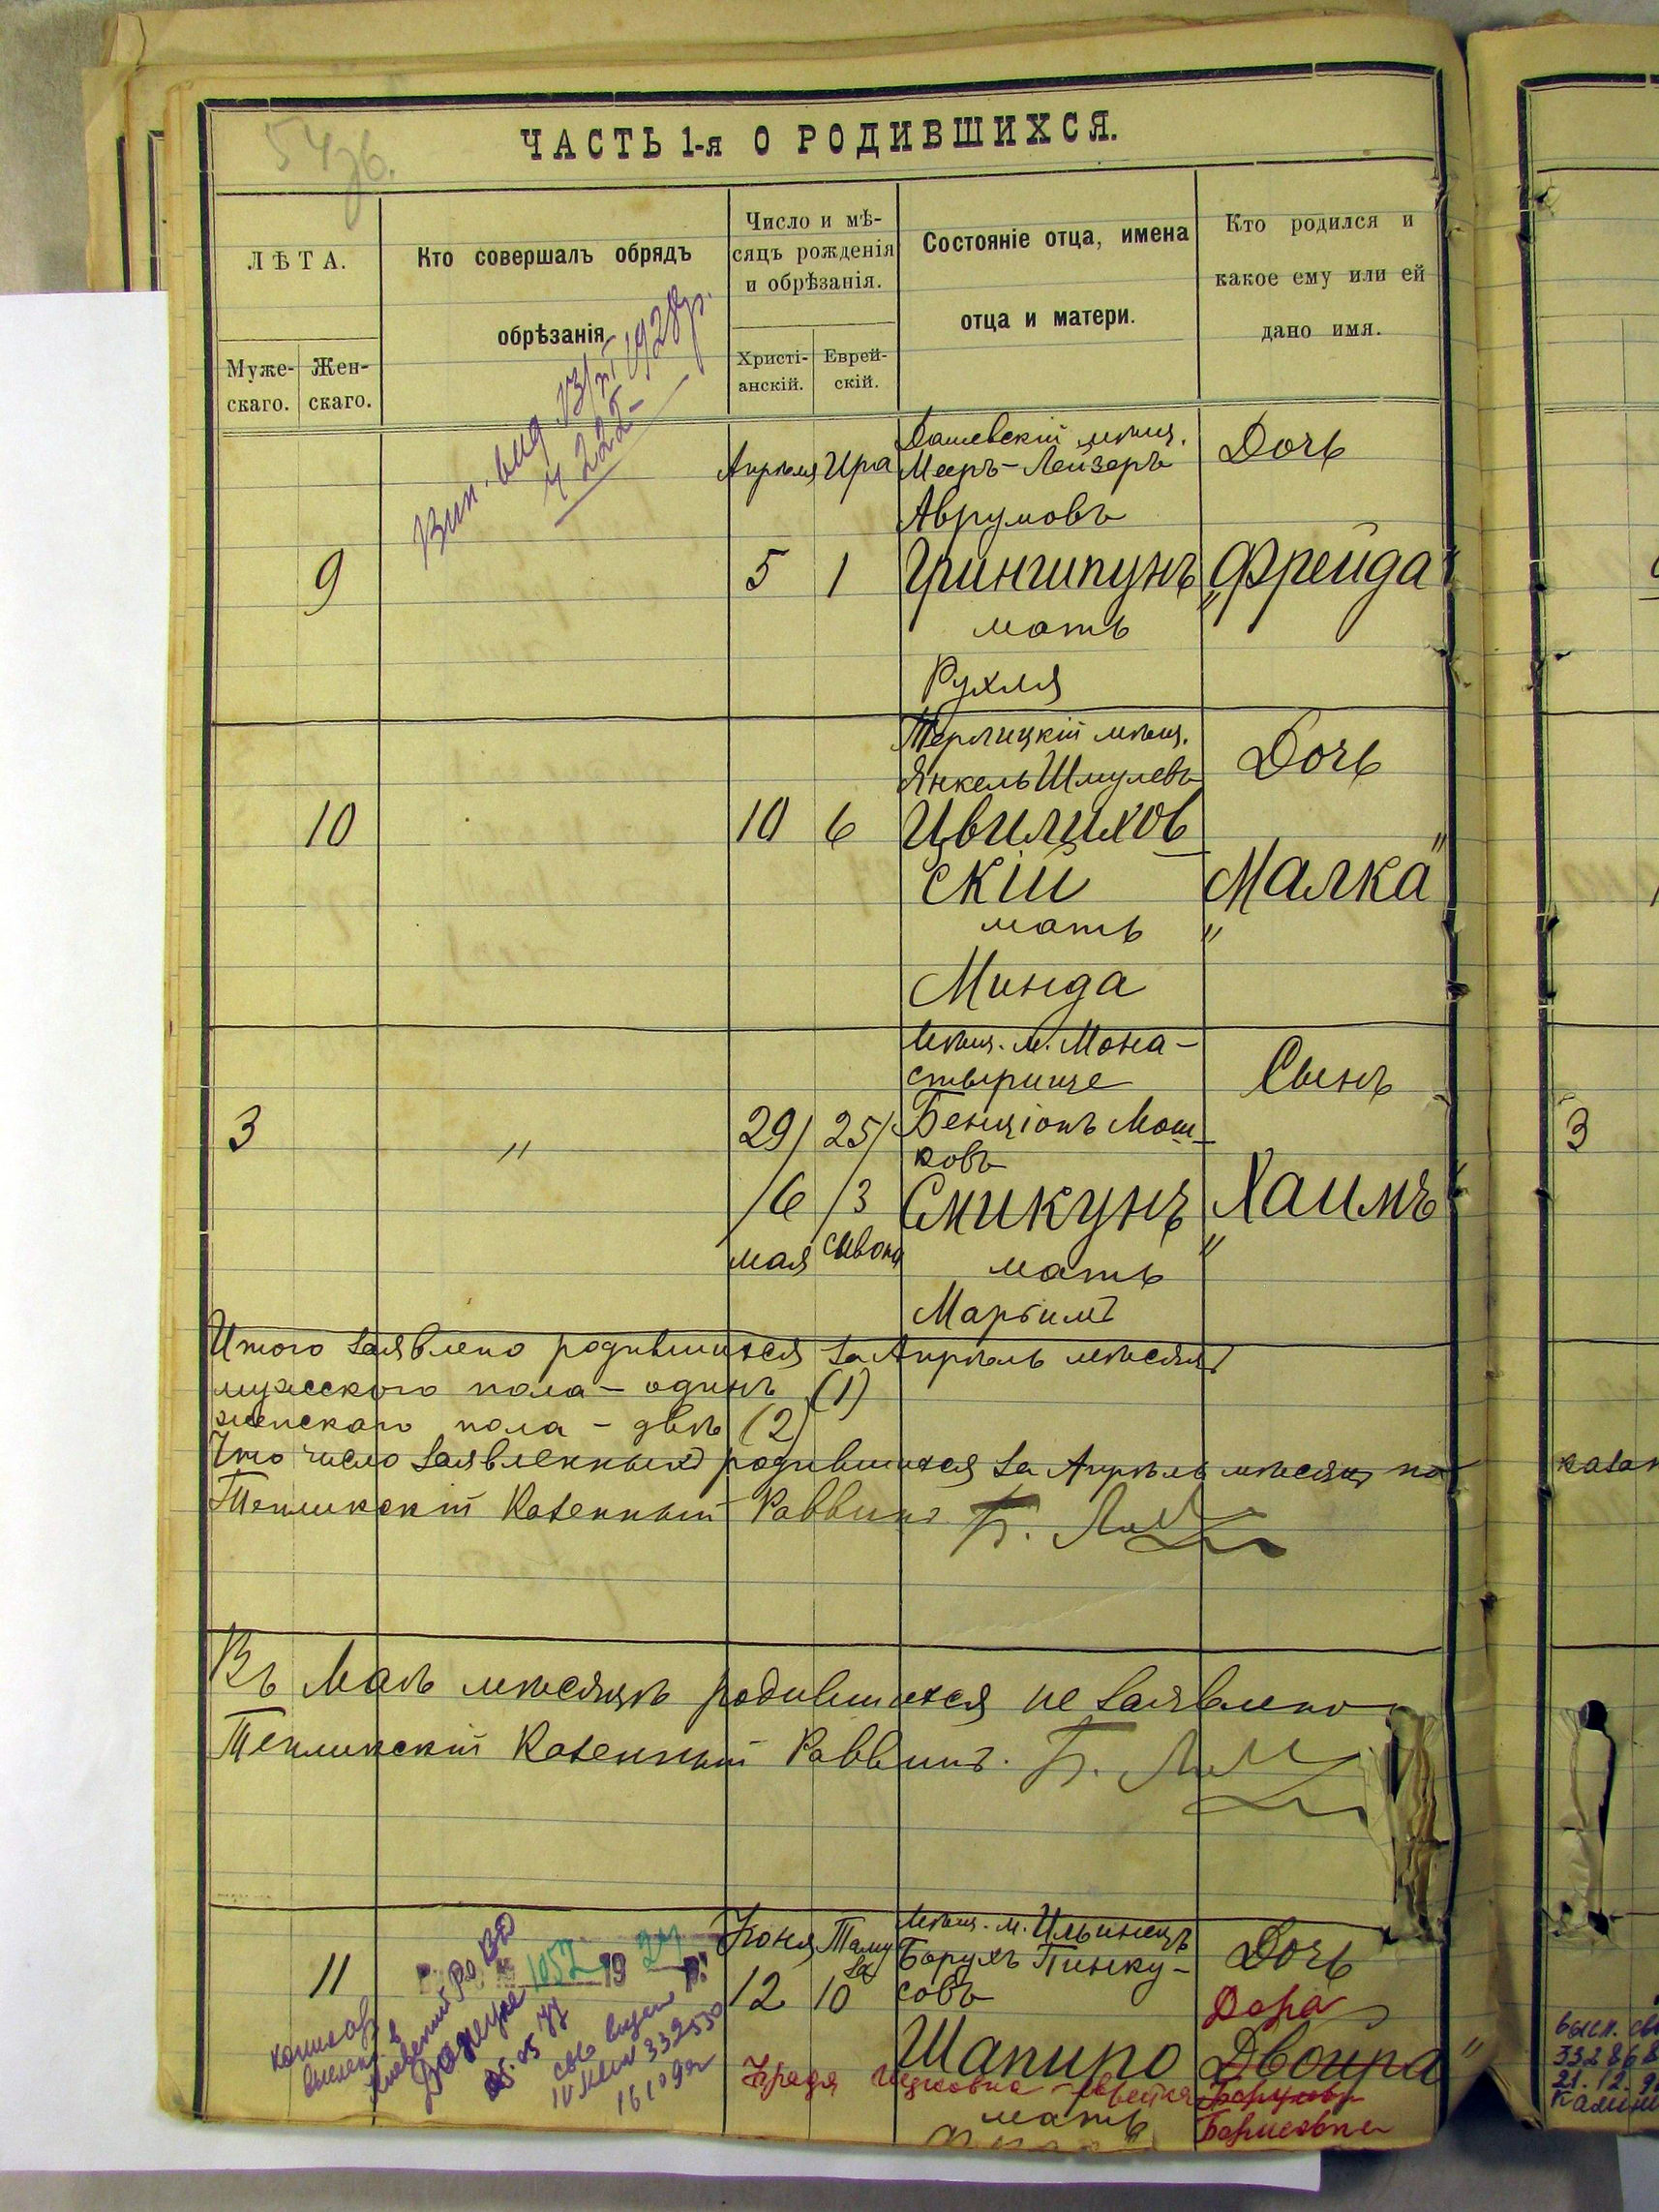 54 зв.
ЧАСТЬ 1-я О РОДИВШИХСЯ.
ЛѢТА.
Муже-
скаго.
Жен-
скаго.
Кто совершалъ обрядъ
обрѣзанія.
Число и мѣ-
сяцъ рожденія
и обрѣзанія.
Христі-
анскій.
Еврей-
скій.
Состояніе отца, имена
отца и матери.
Кто родился и
какое ему или ей
дано имя.
1928 р.
9
Апрѣля
5
Ира
1
Дашевскій мѣщ.
Мееръ-Лейзеръ
Аврумовъ
Гриншпунъ
мать
Рухля
Дочь
„Фрейда"
10
10
6
Терлицкій мѣщ.
Янкель Шмулевъ
Цвилихов
скій
мать
Минда
Дочь
„Малка"
3
"
29/
/6
мая
25/
/3
Сивона
Мѣщ. м. Мона-
стырище
Бенціонъ Мош-
ковъ
Смикунъ
мать
Сынъ
„Хаимъ"
Итого заявлено родившихся за Апрѣль мѣсяцъ
мужескаго пола - одинъ (1)
женскаго пола - двѣ (2)
Что число заявленныхъ родившихся за Апрѣль мѣсяцъ по
Тепликскій Казенный Раввинъ Б.
Въ Маѣ мѣсяцѣ родившихся не заявлено
Тепликскій Казенный Раввинъ. Б.
11
Іюня
12
Таму
за
10
Мѣщ. м. Ильинецъ
Борухъ Пинку-
совъ
Шапиро
мать
Дочь
Дора
Двойра"
Борисовна
1052 19
332530
3
332868
21.12.9